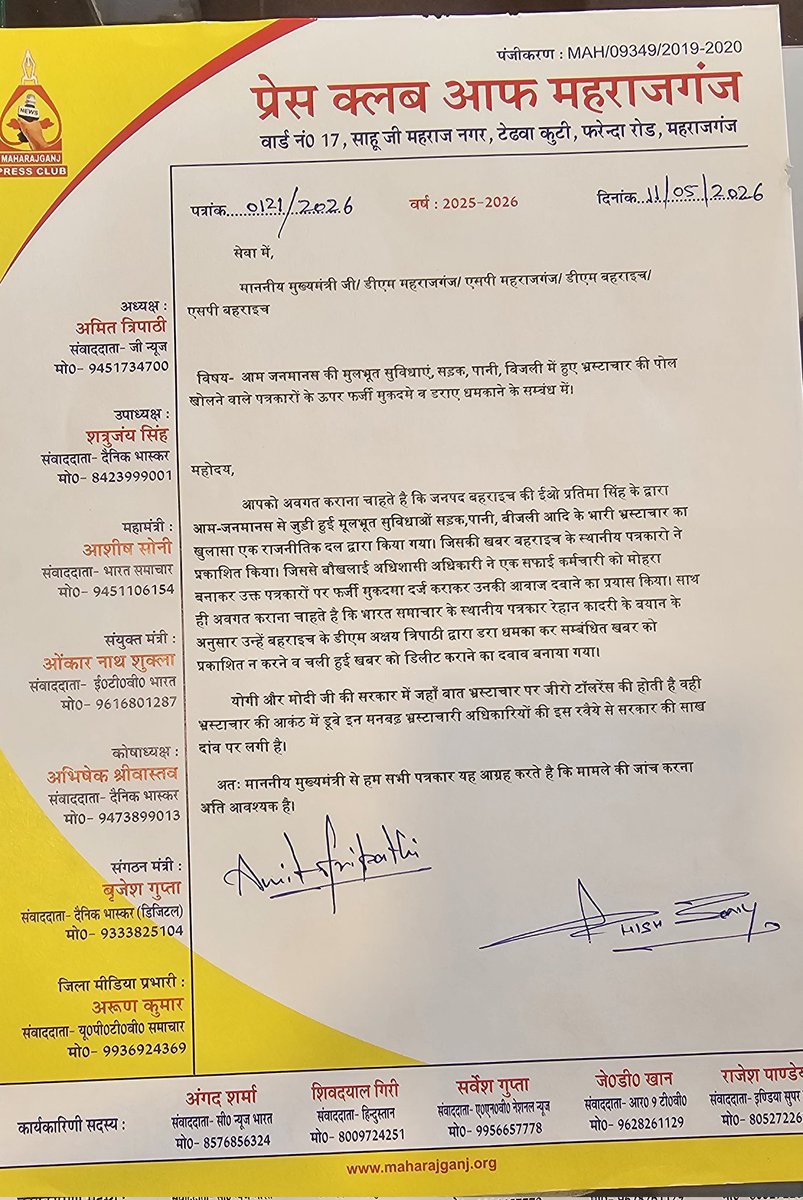 पंजीकरण : MAH/09349/2019-2020
प्रेस क्लब आफ महराजगंज
वार्ड नं0 17, साहू जी महराज नगर, टेढवा कुटी, फरेन्दा रोड, महराजगंज
NEWS
MAHARAJGANJ
PRESS CLUB
पत्रांक..0121/2026 वर्ष : 2025-2026 दिनांक..11/05/2026
सेवा में,
माननीय मुख्यमंत्री जी/ डीएम महराजगंज/ एसपी महराजगंज/ डीएम बहराइच/
एसपी बहराइच
विषय- आम जनमानस की मुलभूत सुविधाएं, सड़क, पानी, विजली में हुए भ्रस्टाचार की पोल
खोलने वाले पत्रकारों के ऊपर फर्जी मुकदमे व डराए धमकाने के सम्बंध में।
महोदय,
आपको अवगत कराना चाहते है कि जनपद बहराइच की ईओ प्रतिमा सिंह के द्वारा
आम-जनमानस से जुडी हुई मूलभूत सुविधाओं सड़क,पानी, बीजली आदि के भारी भ्रस्टाचार का
खुलासा एक राजनीतिक दल द्वारा किया गया। जिसकी खबर बहराइच के स्थानीय पत्रकारो ने
प्रकाशित किया। जिससे बौखलाई अधिशासी अधिकारी ने एक सफाई कर्मचारी को मोहरा
बनाकर उक्त पत्रकारों पर फर्जी मुकदमा दर्ज कराकर उनकी आवाज दवाने का प्रयास किया। साथ
ही अवगत कराना चाहते है कि भारत समाचार के स्थानीय पत्रकार रेहान कादरी के बयान के
अनुसार उन्हें बहराइच के डीएम अक्षय त्रिपाठी द्वारा डरा धमका कर सम्बंधित खबर को
प्रकाशित न करने व चली हुई खबर को डिलीट कराने का दवाव बनाया गया।
योगी और मोदी जी की सरकार में जहाँ बात भ्रस्टाचार पर जीरो टॉलरेंस की होती है वही
भ्रस्टाचार की आकंठ में डूबे इन मनवढ़ भ्रस्टाचारी अधिकारियों की इस रवैये से सरकार की साख
दांव पर लगी है।
अतः माननीय मुख्यमंत्री से हम सभी पत्रकार यह आग्रह करते है कि मामले की जांच करना
अति आवश्यक है।
Amit Tripathi
ASHISH Soniy
अध्यक्ष :
अमित त्रिपाठी
संवाददाता- जी न्यूज
मो0- 9451734700
उपाध्यक्ष :
शत्रुजंय सिंह
संवाददाता- दैनिक भास्कर
मो0- 8423999001
महामंत्री :
आशीष सोनी
संवाददाता- भारत समाचार
मो0- 9451106154
संयुक्त मंत्री :
ओंकार नाथ शुक्ला
संवाददाता- ई0टी0वी0 भारत
मो0- 9616801287
कोषाध्यक्ष :
अभिषेक श्रीवास्तव
संवाददाता- दैनिक भास्कर
मो0- 9473899013
संगठन मंत्री :
बृजेश गुप्ता
संवाददाता- दैनिक भास्कर (डिजिटल)
मो0- 9333825104
जिला मीडिया प्रभारी :
अरूण कुमार
संवाददाता- यू0पी0टी0वी0 समाचार
मो0- 9936924369
कार्यकारिणी सदस्य :
अंगद शर्मा
संवाददाता- सी0 न्यूज भारत
मो0- 8576856324
शिवदयाल गिरी
संवाददाता- हिन्दुस्तान
मो0- 8009724251
सर्वेश गुप्ता
संवाददाता- ए0एन0वी0 नेशनल न्यूज
मो0- 9956657778
जे0डी0 खान
संवाददाता- आर0 9 टी0वी0
मो0- 9628261129
राजेश पाण्डेय
संवाददाता- इण्डिया सुपर
मो0- 80527226
www.maharajganj.org